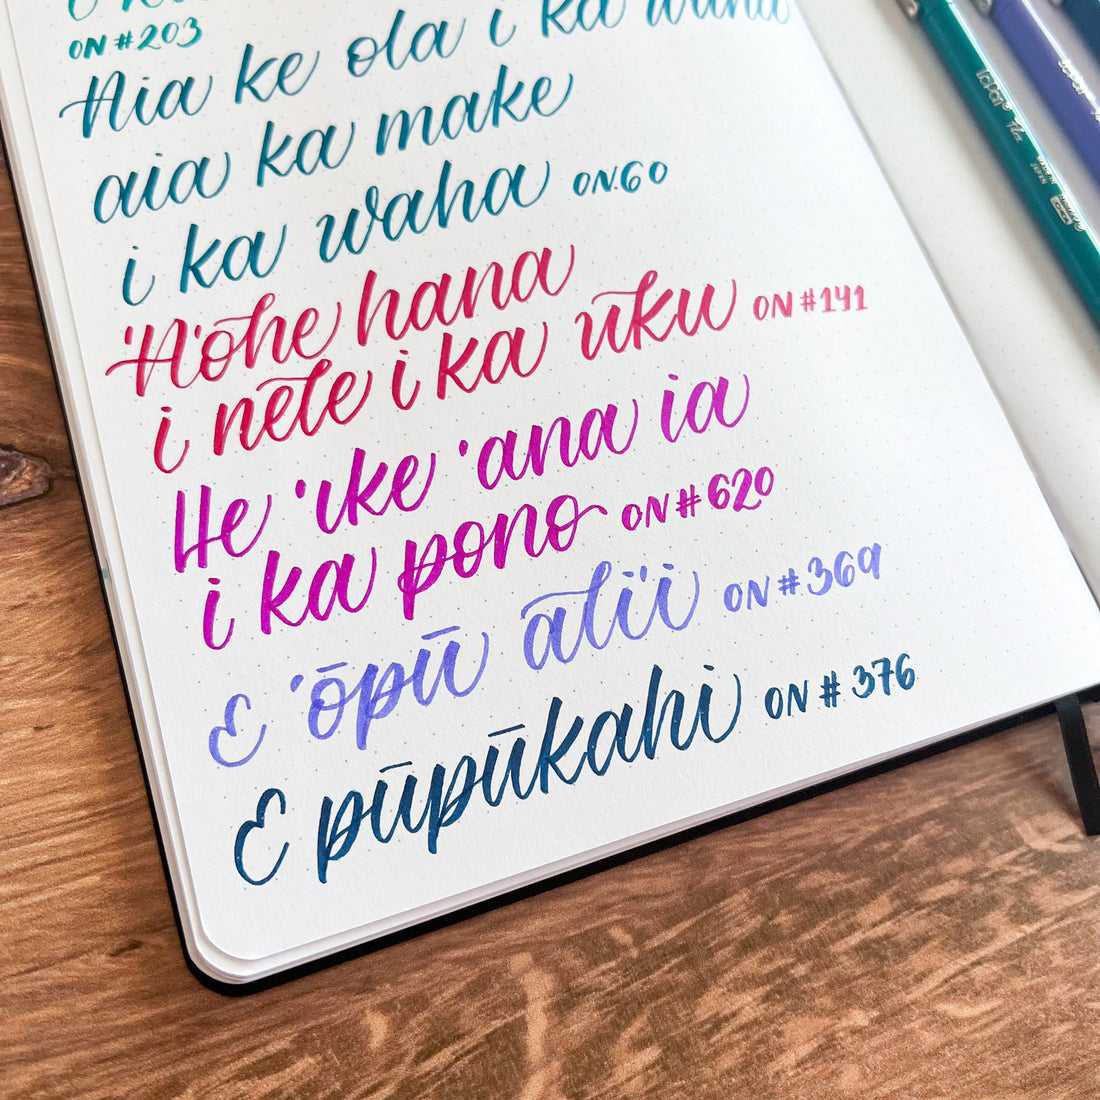 ON #203
Aia ke ola i ka waha
aia ka make
i ka waha ON.60
'A'ohe hana
i nele i ka uku ON #141
He 'ike 'ana ia
i ka pono ON #620
E 'ōpū ali'i ON #369
E pūpūkahi ON # 376
JAPAN